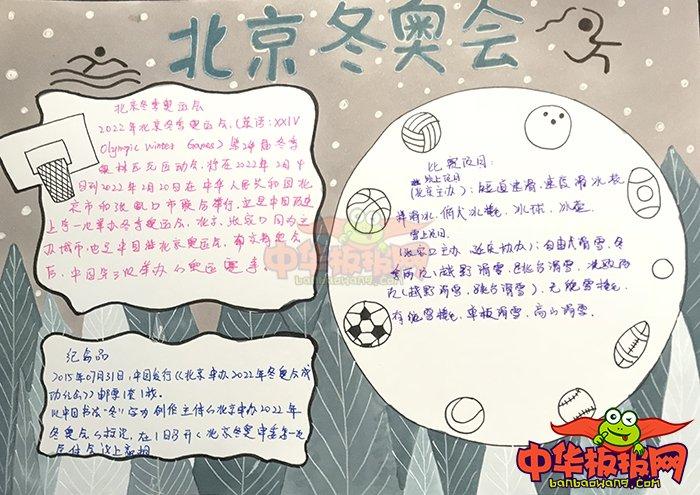 北京冬奥会
北京冬季奥运会
2022年北京冬季奥运会,(英语:XXIV
Olympic Winter Games)第24届冬季
奥林匹克运动会,将在2022年2月4
日到2022年2月20日在中华人民共和国北
京市和张家口市联合举行,这是中国历史
上第一次举办冬季奥运会,北京、张家口同为主
办城市,也是中国继北京奥运会、南京青奥会
后,中国第三次举办的奥运赛事
纪念品
2015年07月31日,中国发行《北京申办2022年冬奥会成
功纪念》邮票1套1枚。
以中国书法"冬"字为
创作主体的北京申办2022年
冬奥会的标识,在1日
比赛项目:
冰上项目
(北京主办):短道速滑,速度滑冰,花
样滑冰,冰球,冰壶
雪上项目
(张家口主办 延庆协办):自由式滑雪,冬
季两项(越野滑雪
跳台滑雪
(越野滑雪、跳台滑雪),无舵雪橇
有舵雪橇,单板滑雪,高山滑雪.
中华板报网
banbaowang.com
中华板报网
banbaowang.com